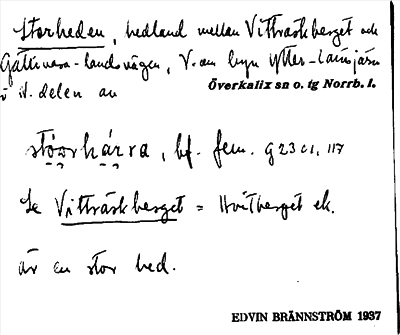 Storheden, hedland mellan Vitträskberget och
Gällivara-landsvägen, V. om byn Ytter-Lansjärv
i N. delen av Överkalix sn o. tg Norrb. l.
stórhárra, bf. fem. G 23 c1, 117
Se Vitträskberget = Hvitberget ek.
är en stor hed.
EDVIN BRÄNNSTRÖM 1937